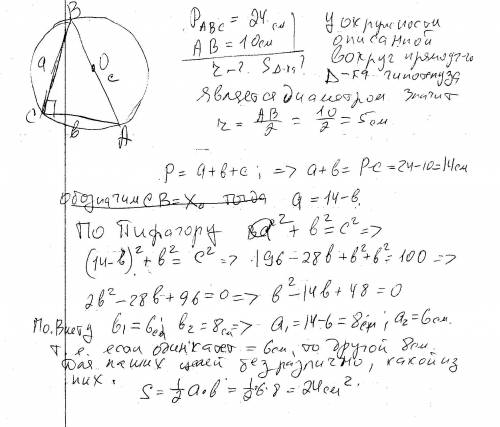 B
a
O
c
C
b
A
P ABC = 24 см
AB = 10 см
r - ? S Δ-ка ?
У окружности
описанной
вокруг прямоуг-го
Δ-ка гипотенуза
является диаметром значит
r = AB/2 = 10/2 = 5 см
P = a + b + c ; => a + b = P - c = 24 - 10 = 14 см
Обозначим CB = X, тогда a = 14 - b.
По Пифагору a² + b² = c² =>
(14 - b)² + b² = c² => 196 - 28b + b² + b² = 100 =>
2b² - 28b + 96 = 0 => b² - 14b + 48 = 0
По Виету b₁ = 6 см b₂ = 8 см => a₁ = 14 - 6 = 8 см; a₂ = 6 см.
т.е. если один катет = 6 см, то другой 8 см.
Для наших целей безразлично, какой из
них.
S = ½ a • b = ½ 6 • 8 = 24 см².